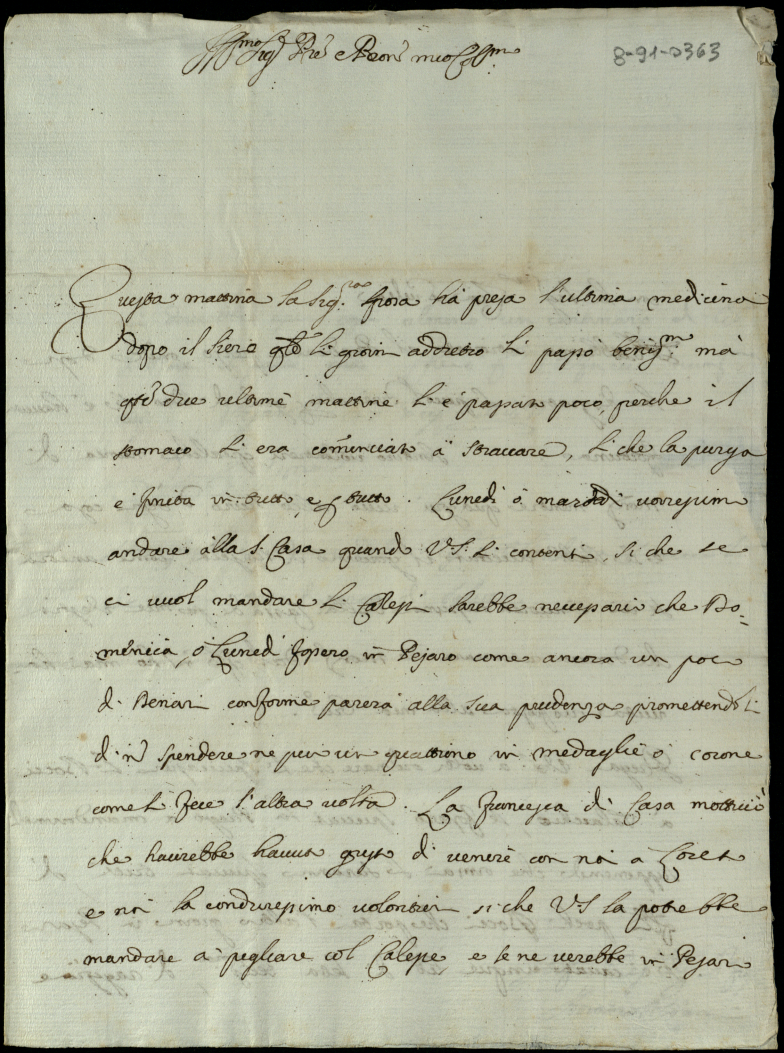 Ill.mo Sig.r P.re e P.ron mio Coll.mo
8-91-0363
Questa mattina la Sig.ra fiora ha presa l'ultima medicina
dopo il siero q.to li giorni addietro li passò benis.m mà
q.te due ultime mattine li è passato poco, perche il
stomaco li era cominciato à straccare, si che la purga
è finita in tutto e p tutto. Lunedi ò martedi vorressimo
andare alla S. Casa quando V.S. si contenti, si che se
ci vuol mandare li Calessi sarebbe necessario che Do=
menica, ò Lunedi fossero in Pesaro come ancora un poco
di Denari conforme parerà alla sua prudenza promettendoli
di n spendere ne pur un quattrino in medaglie ò corone
come si fece l'altra volta. La francesca di Casa mottivò
che haverebbe havuto gusto di venire con noi à Loreto
e noi la condurressimo volontieri si che V.S. la potrebbe
mandare à pigliare col Calesse e se ne verebbe in Pesaro